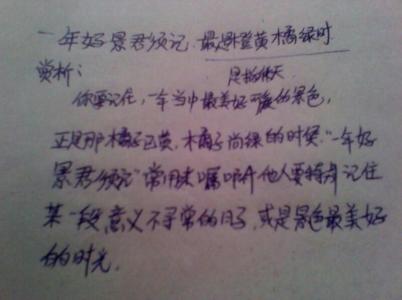 一年好景君须记，最是橙黄橘绿时
赏析：
是指秋天
你要记住，一年当中最美好的景色，
正是那橘子已黄，橘子尚绿的时候。"一年好
景君须记"常用来嘱咐他人要特别记住
某一段意义不寻常的日子，或是景色最美好
的时光。